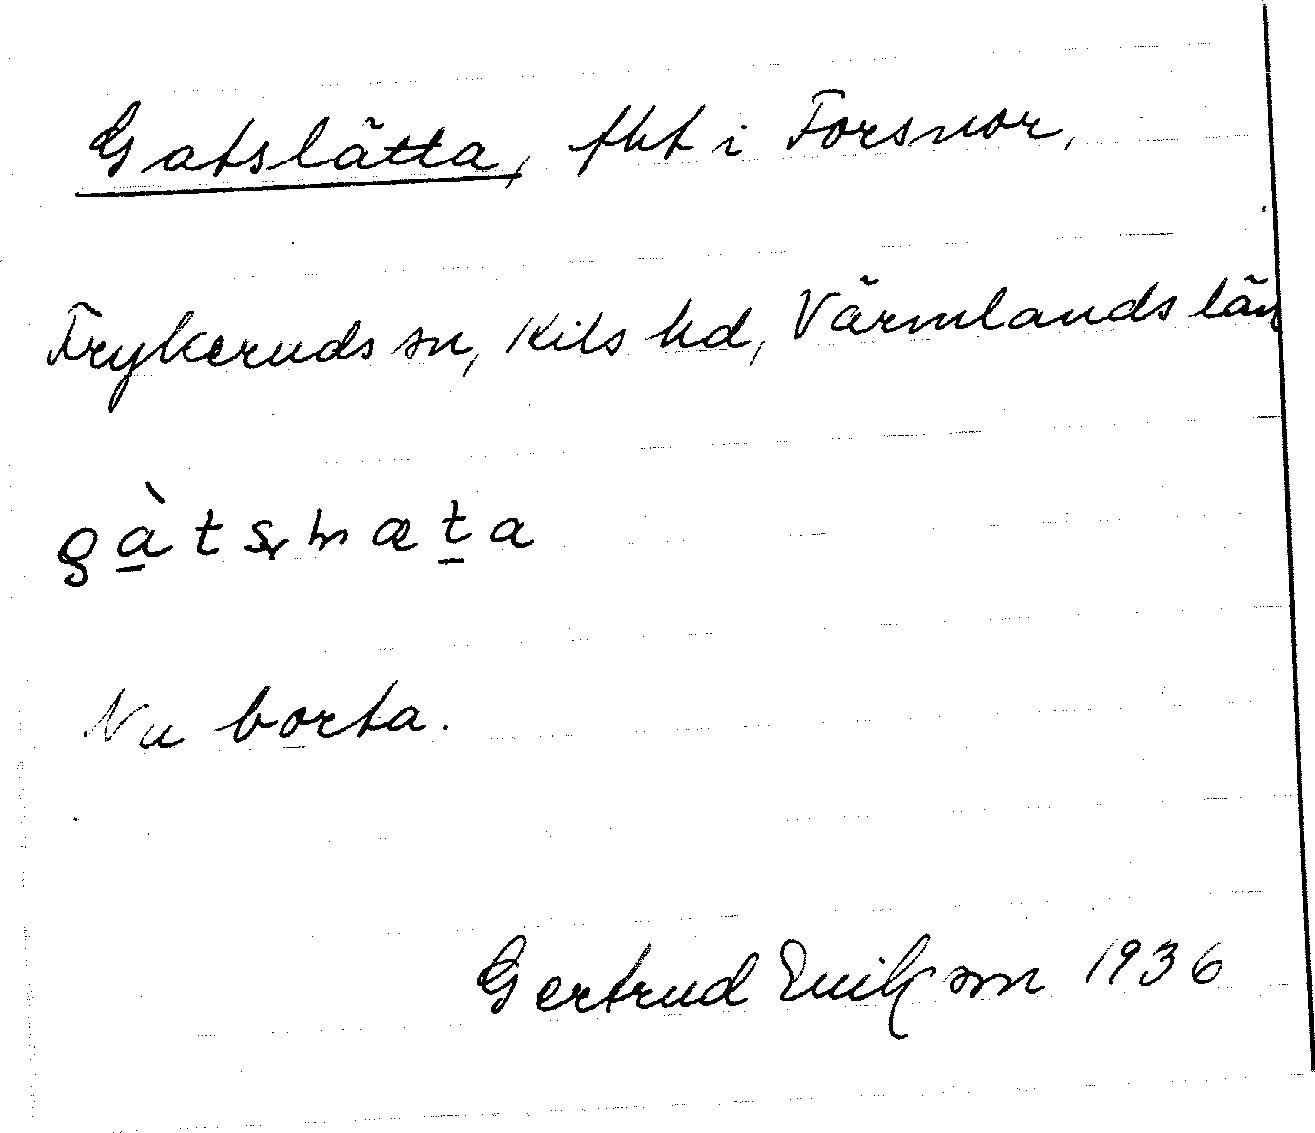 Gatslätta, fht i Forsnor,
Frykeruds sn, Kils hd, Värmlands län
Nu borta.
Gertrud Erikson 1936